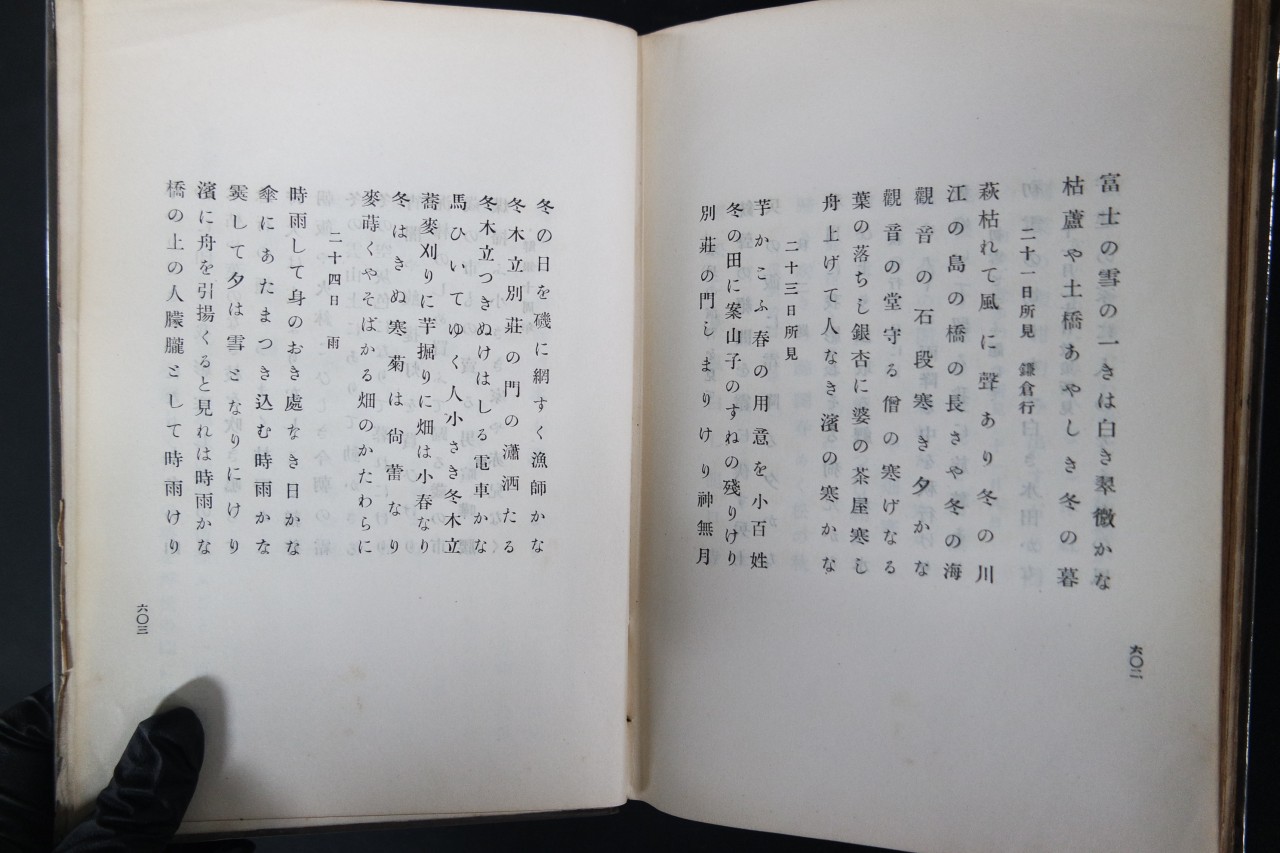 富士の雪の一きは白き翠微かな
枯蘆や土橋あやしき冬の暮
二十一日所見　鎌倉行
萩枯れて風に聲あり冬の川
江の島の橋の長さや冬の海
觀音の石段寒き夕かな
觀音の堂守る僧の寒げなる
葉の落ちし銀杏に婆の茶屋寒し
舟上げて人なき濱の寒かな
二十三日所見
芋かこふ春の用意を小百姓
冬の田に案山子のすねの殘りけり
別莊の門しまりけり神無月
六〇二
冬の日を磯に網すく漁師かな
冬木立別莊の門の瀟洒たる
冬木立つきぬけはしる電車かな
馬ひいてゆく人小さき冬木立
蕎麥刈りに芋掘りに畑は小春なり
冬はきぬ寒菊は尙蕾なり
麥蒔くやそばかる畑のかたわらに
二十四日　雨
時雨して身のおき處なき日かな
傘にあたまつき込む時雨かな
霙して夕は雪となりにけり
濱に舟を引揚くると見れは時雨かな
橋の上の人朦朧として時雨けり
六〇三